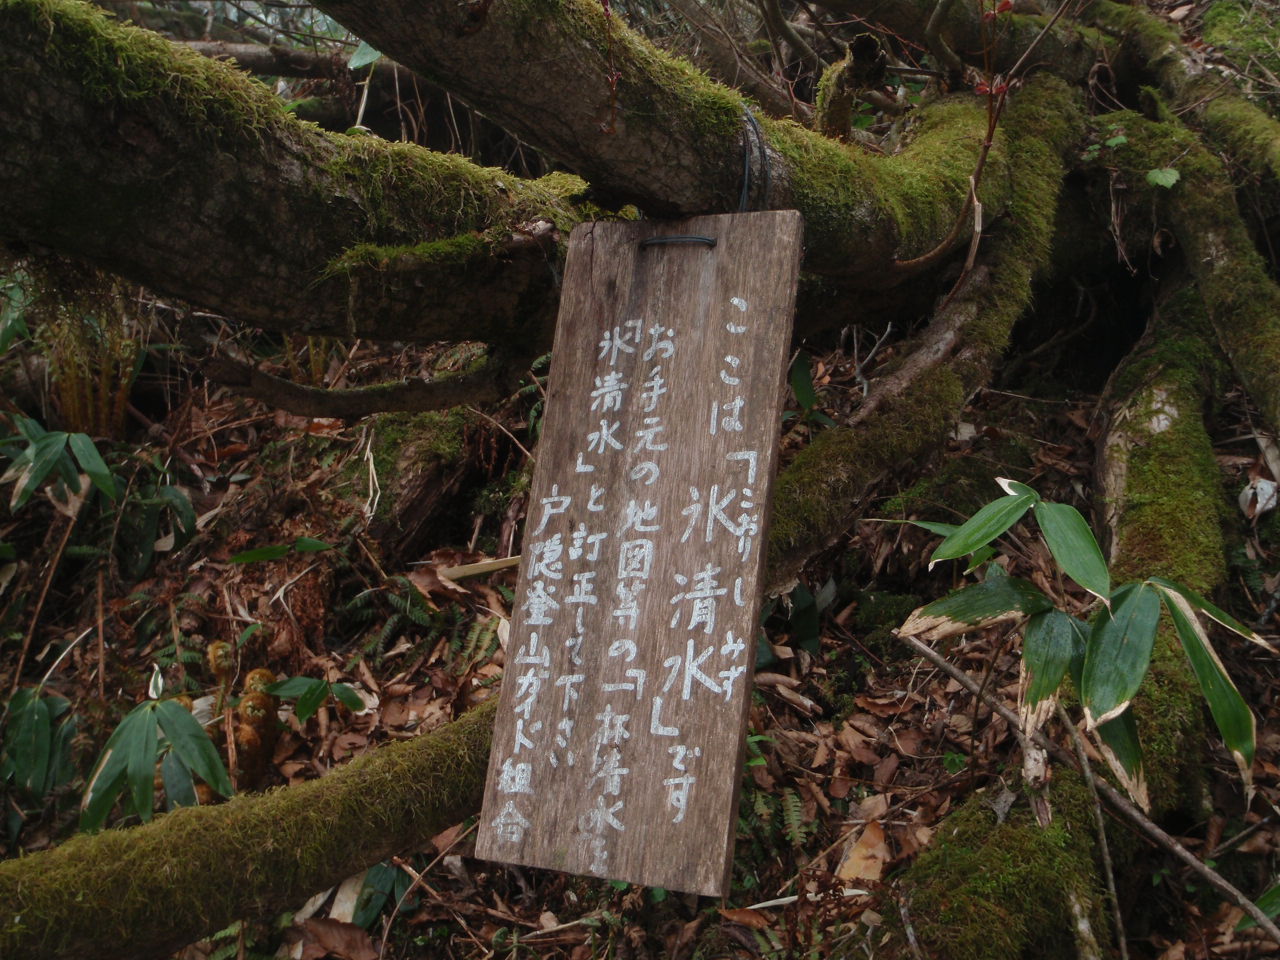 ここは「氷清水」です
こおりしみず
お手元の地図等の「一杯清水を
「氷清水」と訂正して下さい
戸隠登山ガイド組合